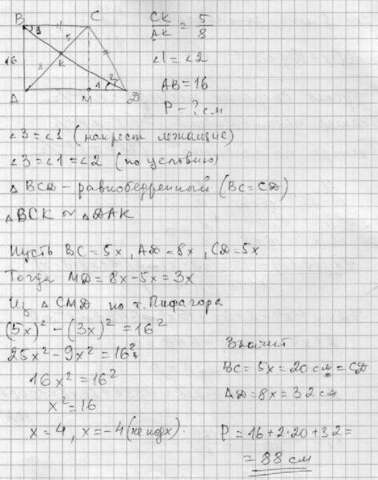 B C
3
5
16 K
2
1
A M D
CK/AK = 5/8
∠1 = ∠2
AB = 16
P - ? см
∠3 = ∠1 (накрест лежащие)
∠3 = ∠1 = ∠2 (по условию)
△ BCD - равнобедренный (BC = CD)
△BCK ∾ △DAK
Пусть BC = 5x, AD = 8x, CD = 5x
Тогда MD = 8x - 5x = 3x
Из △ CMD по т. Пифагора
(5x)² - (3x)² = 16²
25x² - 9x² = 16²
16x² = 16²
x² = 16
x = 4, x = -4 (не подх).
Значит
BC = 5x = 20 см = CD
AD = 8x = 32 см
P = 16 + 2·20 + 32 =
= 88 см